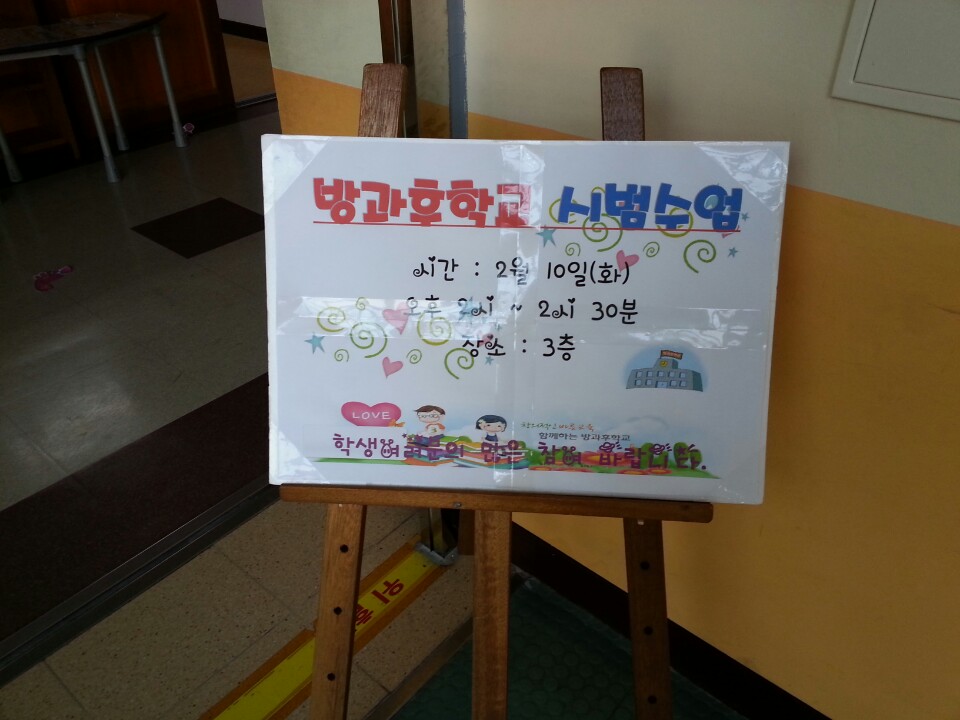 방과후학교 시범수업
시간 : 2월 10일(화)
오후 2시 ~ 2시 30분
장소 : 3층
LOVE
함께하는 방과후학교
학생여러분의 많은 참여 바랍니다.